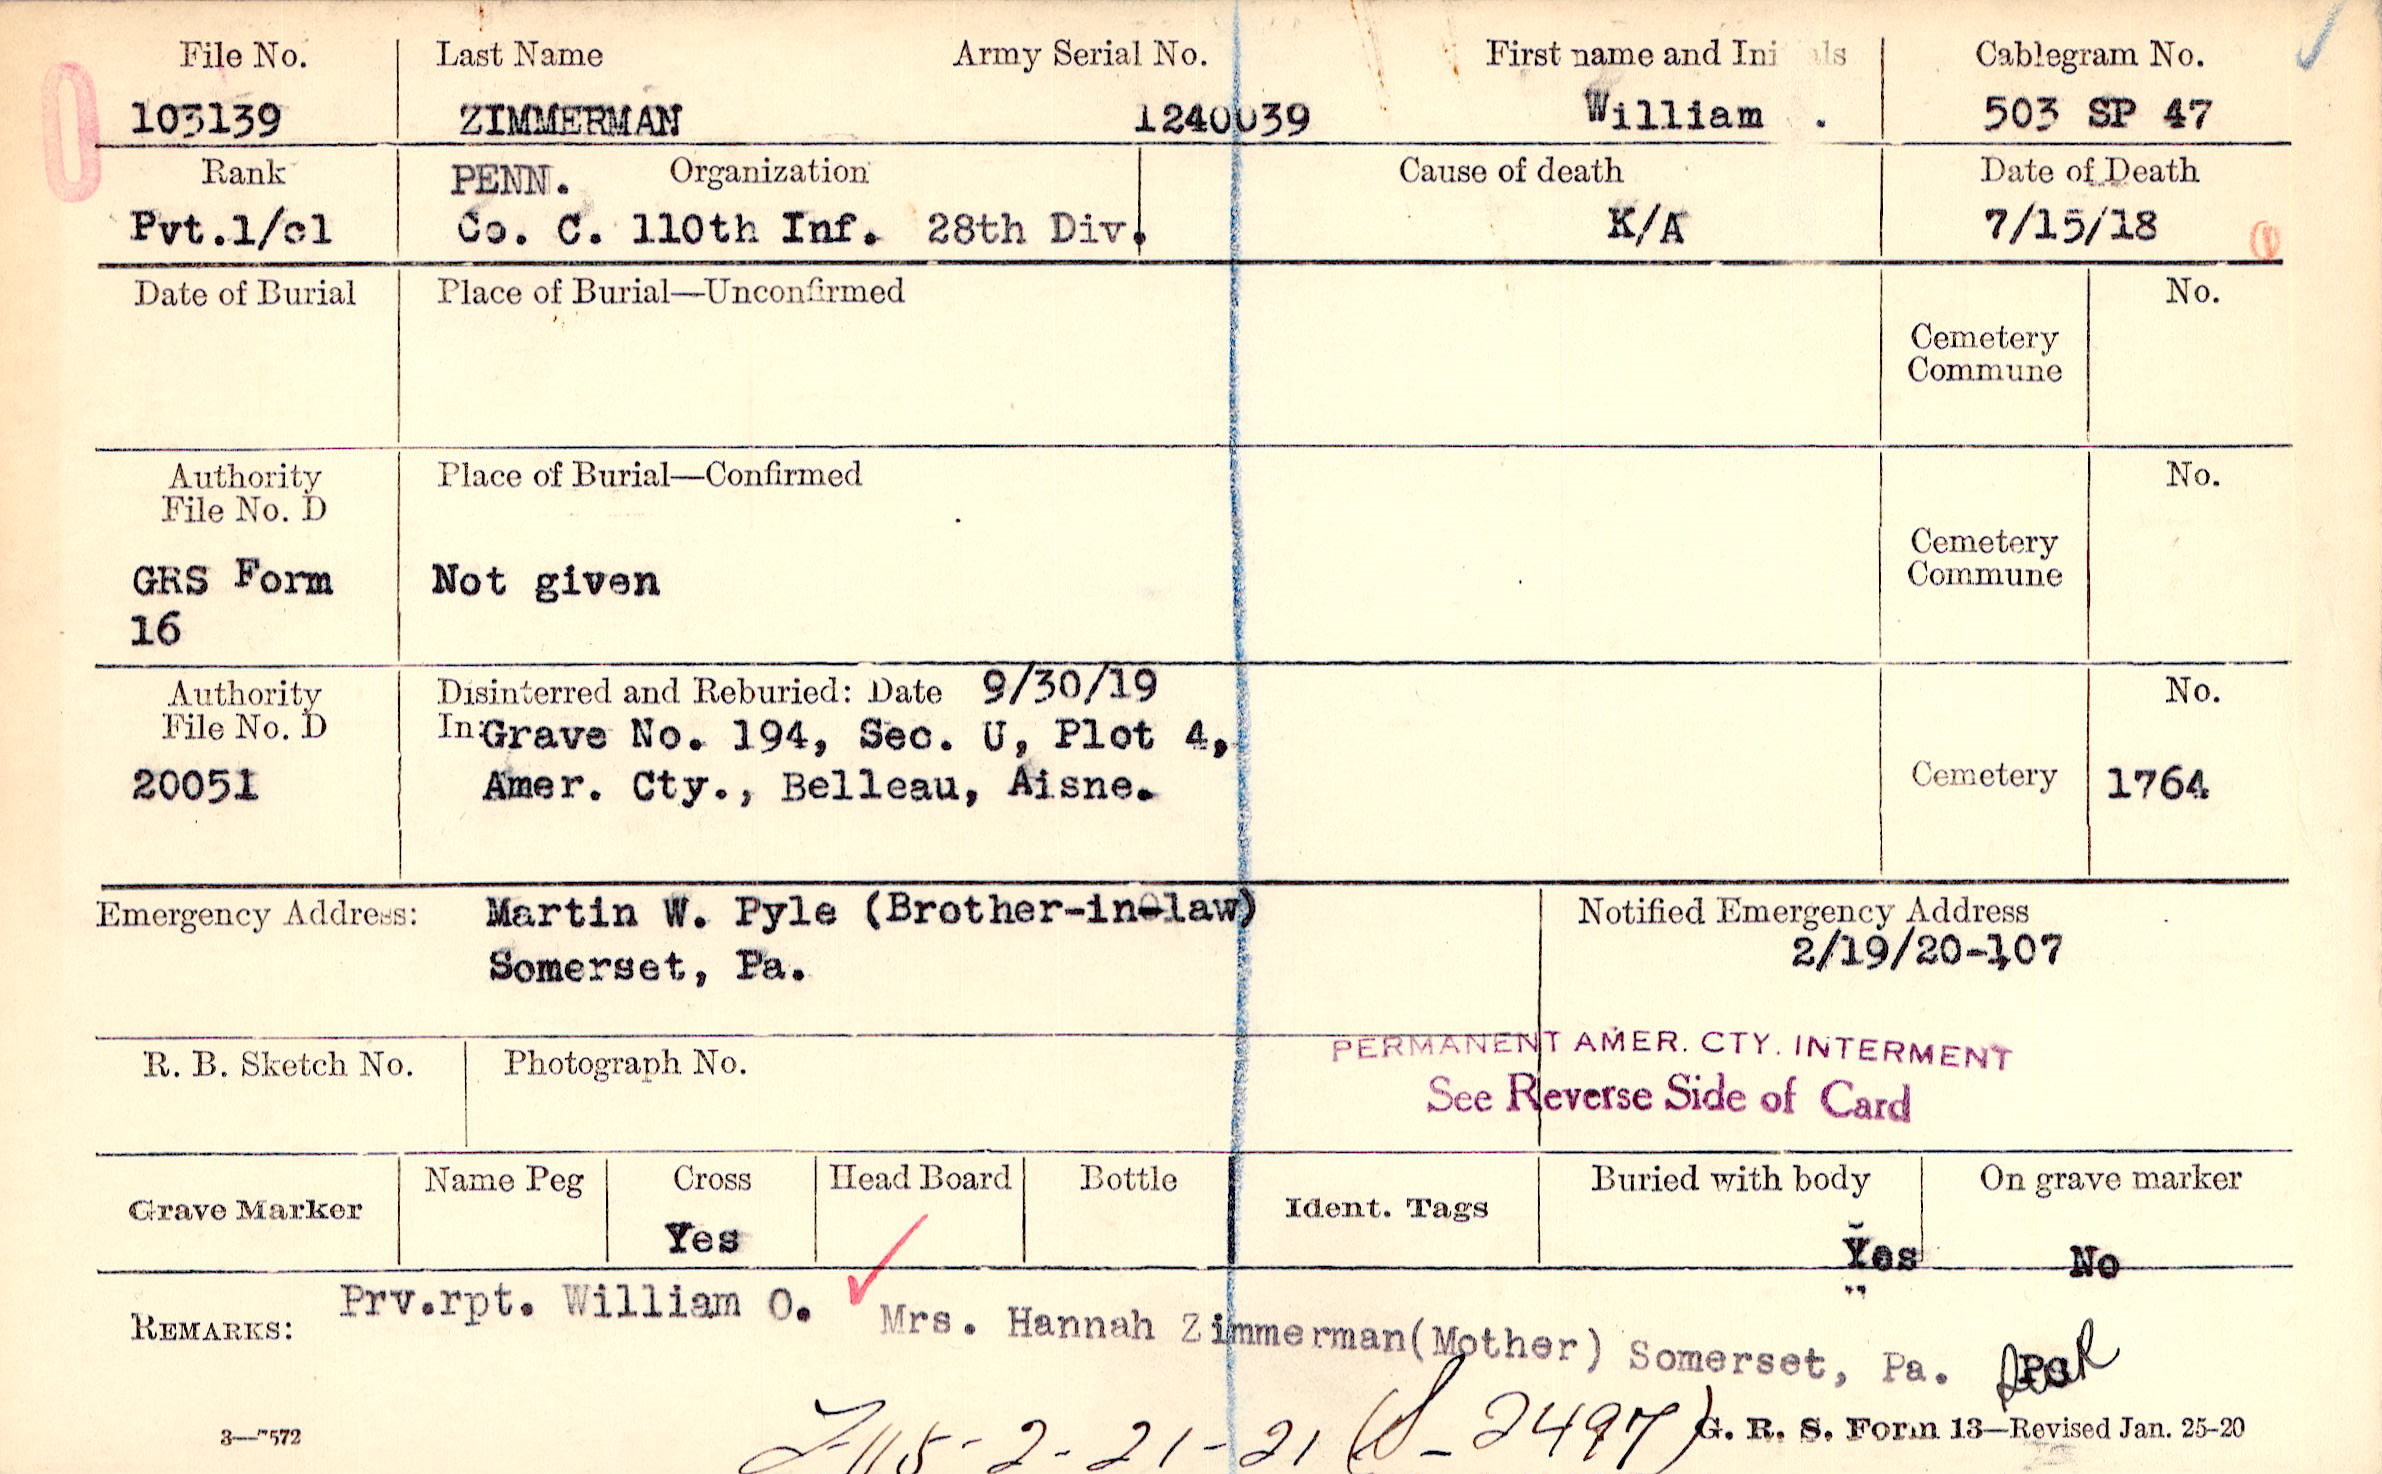 File No. Last Name Army Serial No. First name and Ini als Cablegram No.
103139 ZIMMERMAN 1240039 William . 503 SP 47
Rank PENN. Organization Cause of death Date of Death
Pvt.1/cl Co. C. 110th Inf. 28th Div. K/A 7/15/18
Date of Burial Place of Burial—Unconfirmed No.
Cemetery
Commune
Authority Place of Burial—Confirmed No.
File No. D
Cemetery
Commune
GRS Form Not given
16
Authority Disinterred and Reburied: Date 9/30/19 No.
File No. D In: Grave No. 194, Sec. U, Plot 4,
20051 Amer. Cty., Belleau, Aisne. Cemetery 1764
Emergency Address: Martin W. Pyle (Brother-in-law) Notified Emergency Address
Somerset, Pa. 2/19/20-107
R. B. Sketch No. Photograph No. PERMANENT AMER. CTY. INTERMENT
See Reverse Side of Card
Name Peg Cross Head Board Bottle Buried with body On grave marker
Grave Marker Ident. Tags
Yes Yes No
REMARKS: Prv.rpt. William O. Mrs. Hannah Zimmerman(Mother) Somerset, Pa.
2-21-21 (S-2497)
3—7572 G. R. S. Form 13—Revised Jan. 25-20